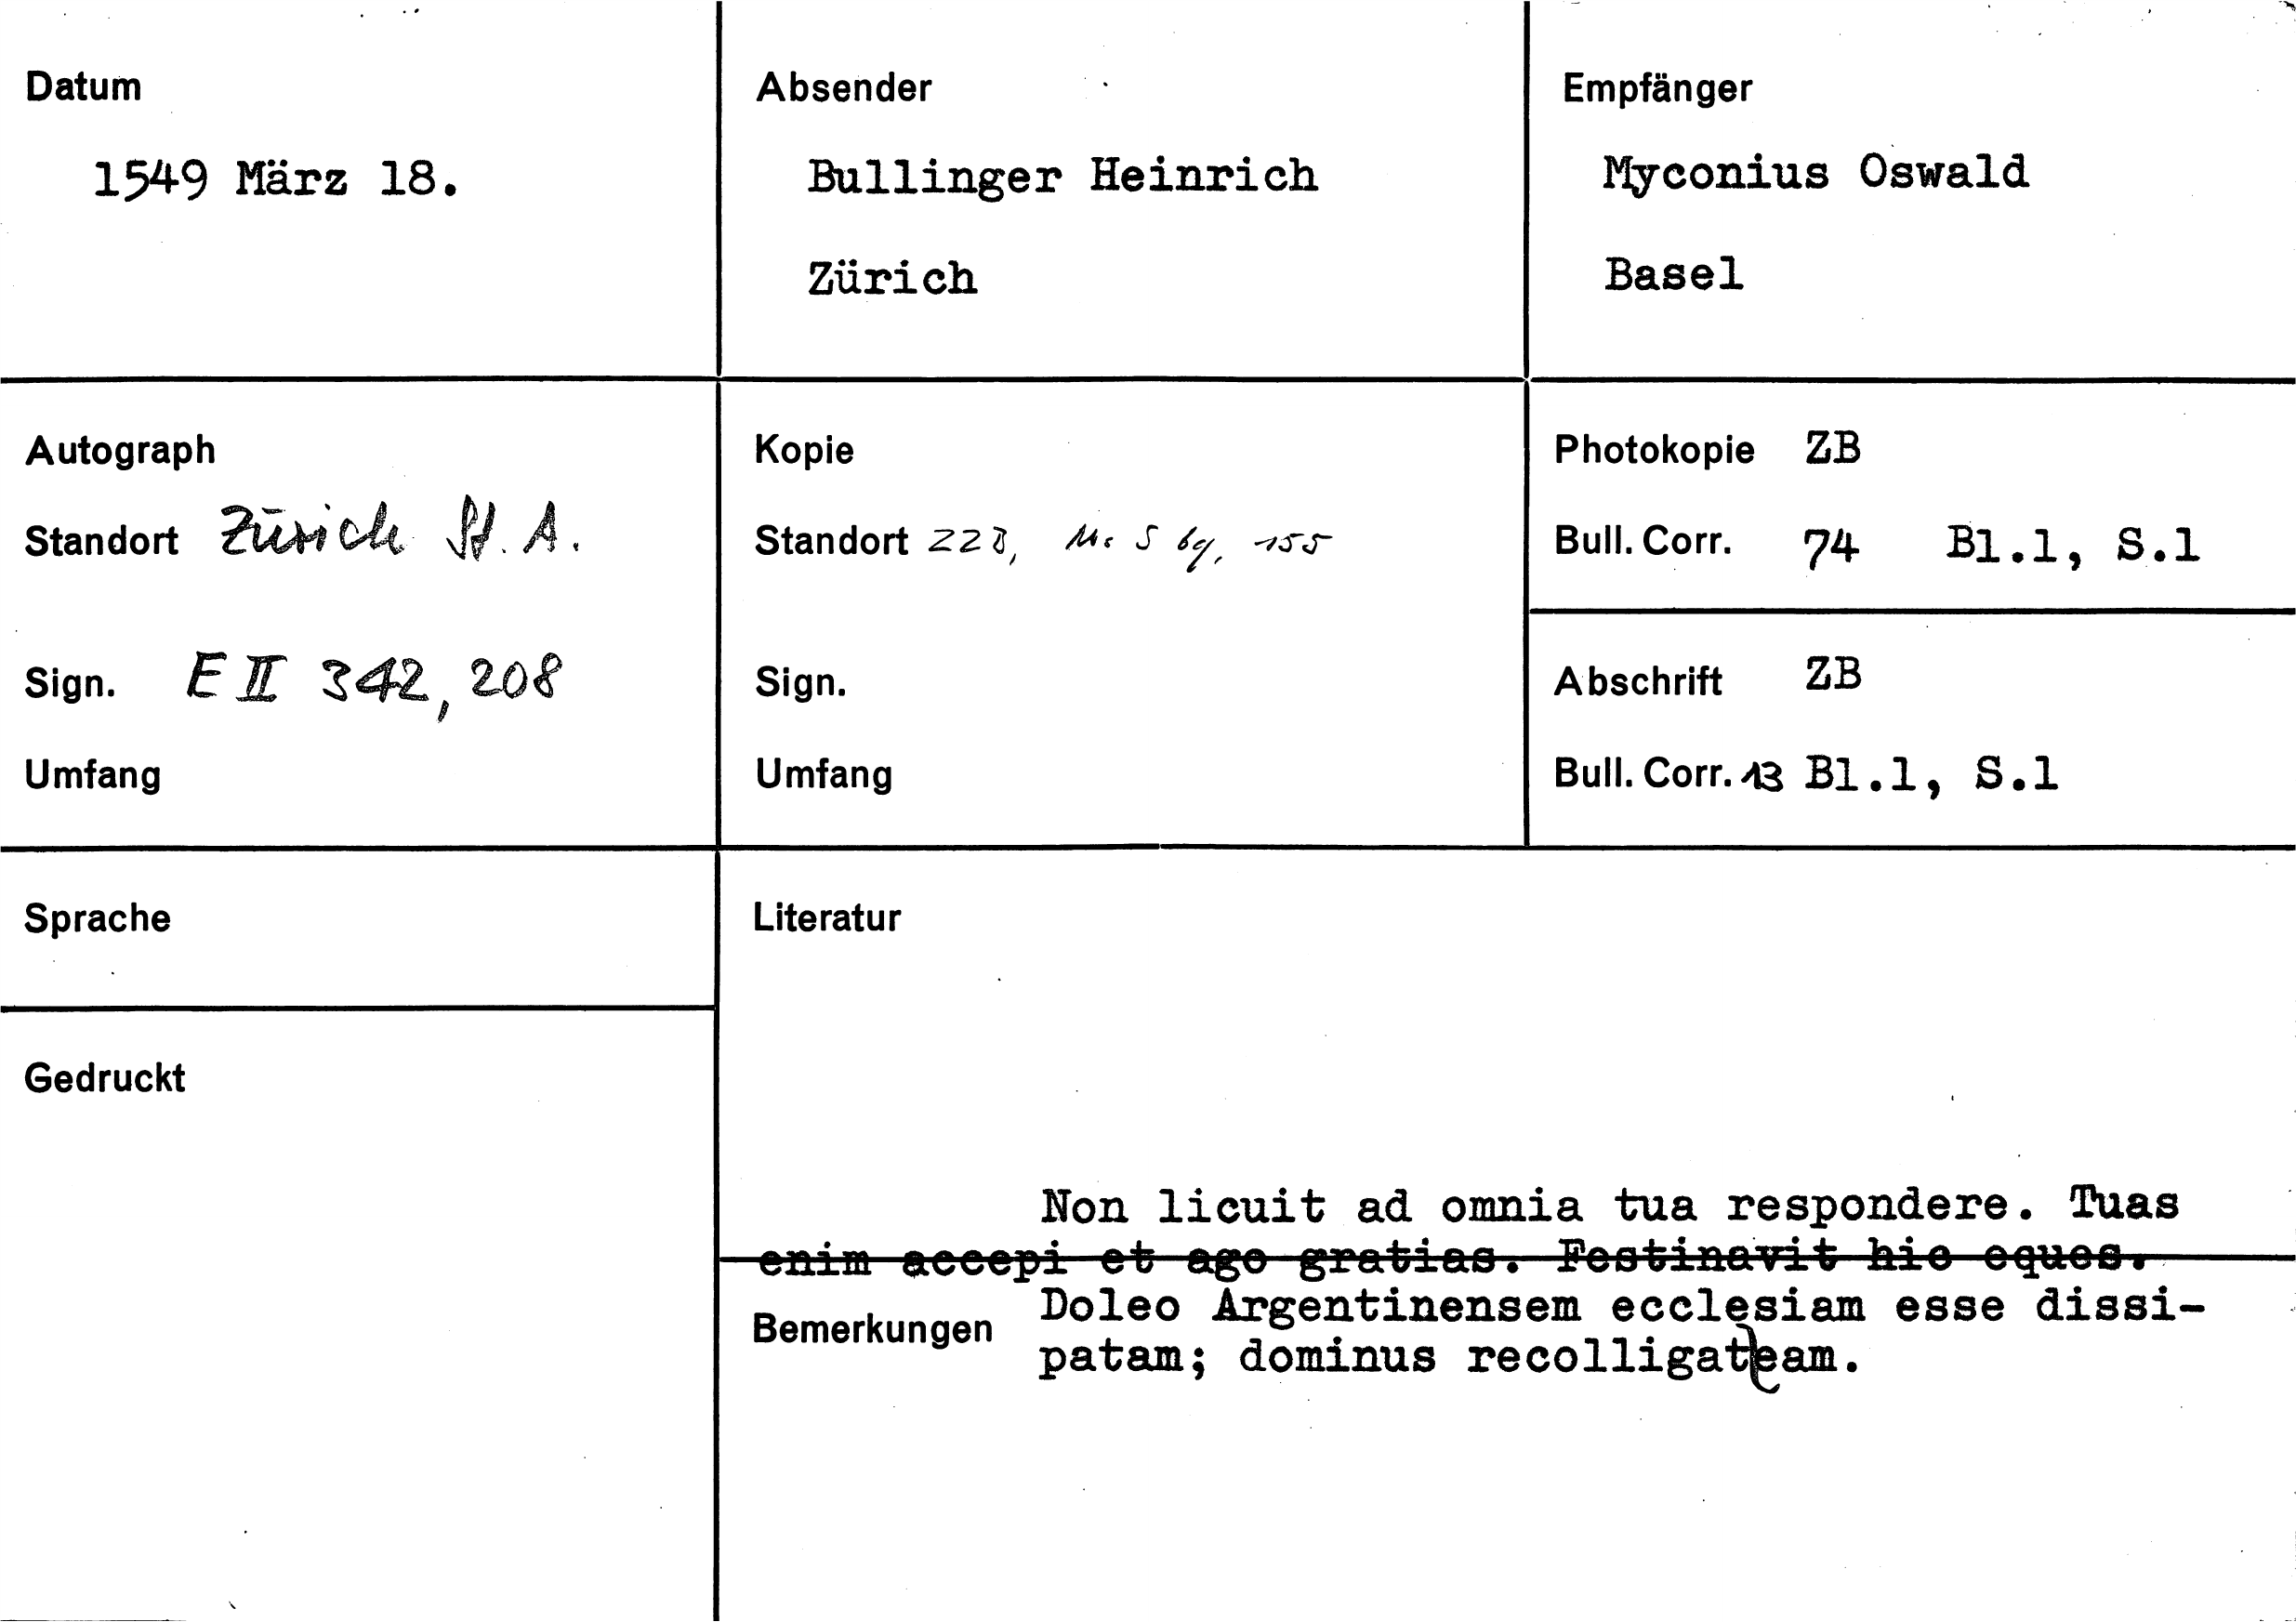 Datum
1549 März 18.
Absender
Bullinger Heinrich
Zürich
Empfänger
Myconius Oswald
Basel
Autograph
Standort Zürich St. A.
Sign. E II 342, 208
Umfang
Kopie
Standort ZZB, Ms S 69, 155
Sign.
Umfang
Photokopie ZB
Bull. Corr. 74 Bl.1, S.1
Abschrift ZB
Bull. Corr. 13 Bl.1, S.1
Sprache
Gedruckt
Literatur
Non licuit ad omnia tua respondere. Tuas
enim accepi et ago gratias. Festinavit hic eques.
Bemerkungen
Doleo Argentinensem ecclesiam esse dissi-
patam; dominus recolligat eam.